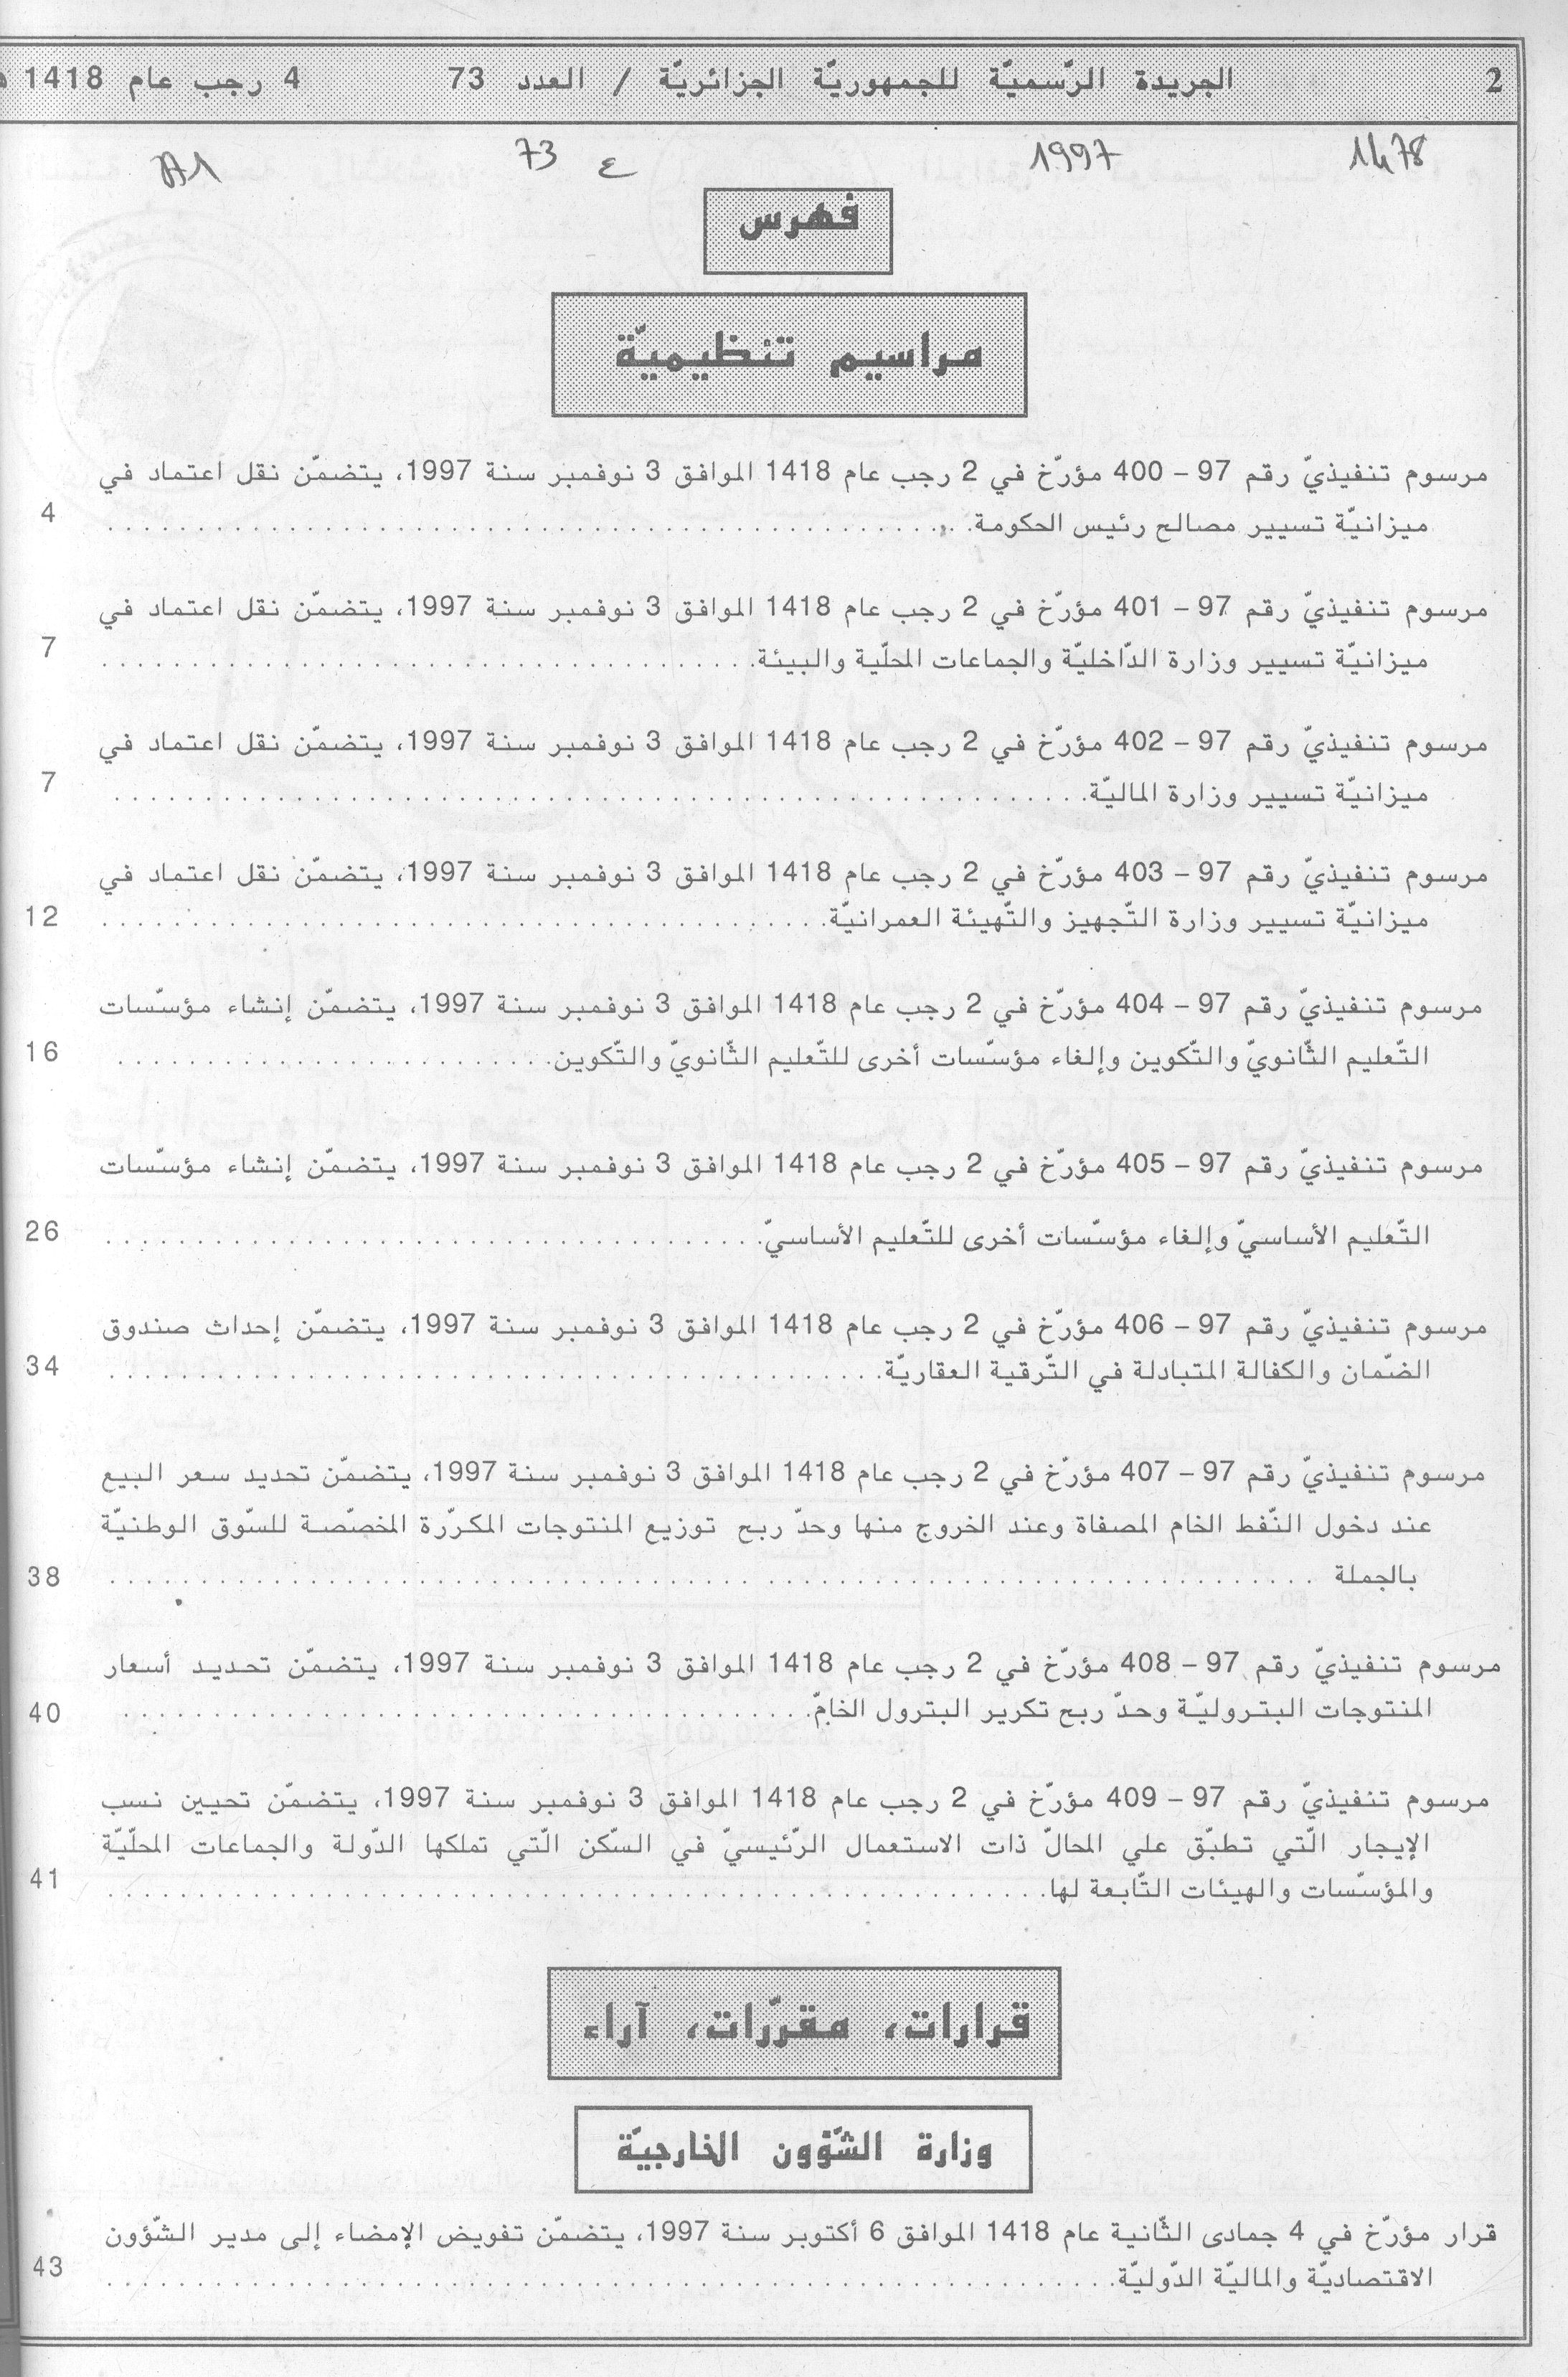 2 الجريدة الرّسميّة للجمهوريّة الجزائريّة / العدد 73 4 رجب عام 1418
1997 ع 73
فهرس
مراسيم تنظيميّة
مرسوم تنفيذيّ رقم 97 – 400 مؤرّخ في 2 رجب عام 1418 الموافق 3 نوفمبر سنة 1997، يتضمّن نقل اعتماد في
ميزانيّة تسيير مصالح رئيس الحكومة. . . . . . . . . . . . . . . . . . . . 4
مرسوم تنفيذيّ رقم 97 – 401 مؤرّخ في 2 رجب عام 1418 الموافق 3 نوفمبر سنة 1997، يتضمّن نقل اعتماد في
ميزانيّة تسيير وزارة الدّاخليّة والجماعات المحلّية والبيئة. . . . . . . . . . . . . . . . . . . . 7
مرسوم تنفيذيّ رقم 97 – 402 مؤرّخ في 2 رجب عام 1418 الموافق 3 نوفمبر سنة 1997، يتضمّن نقل اعتماد في
ميزانيّة تسيير وزارة الماليّة. . . . . . . . . . . . . . . . . . . . 7
مرسوم تنفيذيّ رقم 97 – 403 مؤرّخ في 2 رجب عام 1418 الموافق 3 نوفمبر سنة 1997، يتضمّن نقل اعتماد في
ميزانيّة تسيير وزارة التّجهيز والتّهيئة العمرانيّة. . . . . . . . . . . . . . . . . . . . 12
مرسوم تنفيذيّ رقم 97 – 404 مؤرّخ في 2 رجب عام 1418 الموافق 3 نوفمبر سنة 1997، يتضمّن إنشاء مؤسّسات
التّعليم الثّانويّ والتّكوين وإلغاء مؤسّسات أخرى للتّعليم الثّانويّ والتّكوين. . . . . . . . . . . . . . . . . . . . 16
مرسوم تنفيذيّ رقم 97 – 405 مؤرّخ في 2 رجب عام 1418 الموافق 3 نوفمبر سنة 1997، يتضمّن إنشاء مؤسّسات
التّعليم الأساسيّ وإلغاء مؤسّسات أخرى للتّعليم الأساسيّ. . . . . . . . . . . . . . . . . . . . 26
مرسوم تنفيذيّ رقم 97 – 406 مؤرّخ في 2 رجب عام 1418 الموافق 3 نوفمبر سنة 1997، يتضمّن إحداث صندوق
الضّمان والكفالة المتبادلة في التّرقية العقاريّة. . . . . . . . . . . . . . . . . . . . 34
مرسوم تنفيذيّ رقم 97 – 407 مؤرّخ في 2 رجب عام 1418 الموافق 3 نوفمبر سنة 1997، يتضمّن تحديد سعر البيع
عند دخول النّفط الخام المصفاة وعند الخروج منها وحدّ ربح توزيع المنتوجات المكرّرة المخصّصة للسّوق الوطنيّة
بالجملة . . . . . . . . . . . . . . . . . . . . 38
مرسوم تنفيذيّ رقم 97 – 408 مؤرّخ في 2 رجب عام 1418 الموافق 3 نوفمبر سنة 1997، يتضمّن تحديد أسعار
المنتوجات البتروليّة وحدّ ربح تكرير البترول الخامّ. . . . . . . . . . . . . . . . . . . . 40
مرسوم تنفيذيّ رقم 97 – 409 مؤرّخ في 2 رجب عام 1418 الموافق 3 نوفمبر سنة 1997، يتضمّن تحيين نسب
الإيجار الّتي تطبّق علي المحالّ ذات الاستعمال الرّئيسيّ في السّكن الّتي تملكها الدّولة والجماعات المحلّيّة
والمؤسّسات والهيئات التّابعة لها. . . . . . . . . . . . . . . . . . . . 41
قرارات، مقرّرات، آراء
وزارة الشّؤون الخارجيّة
قرار مؤرّخ في 4 جمادى الثّانية عام 1418 الموافق 6 أكتوبر سنة 1997، يتضمّن تفويض الإمضاء إلى مدير الشّؤون
الاقتصاديّة والماليّة الدّوليّة. . . . . . . . . . . . . . . . . . . . 43